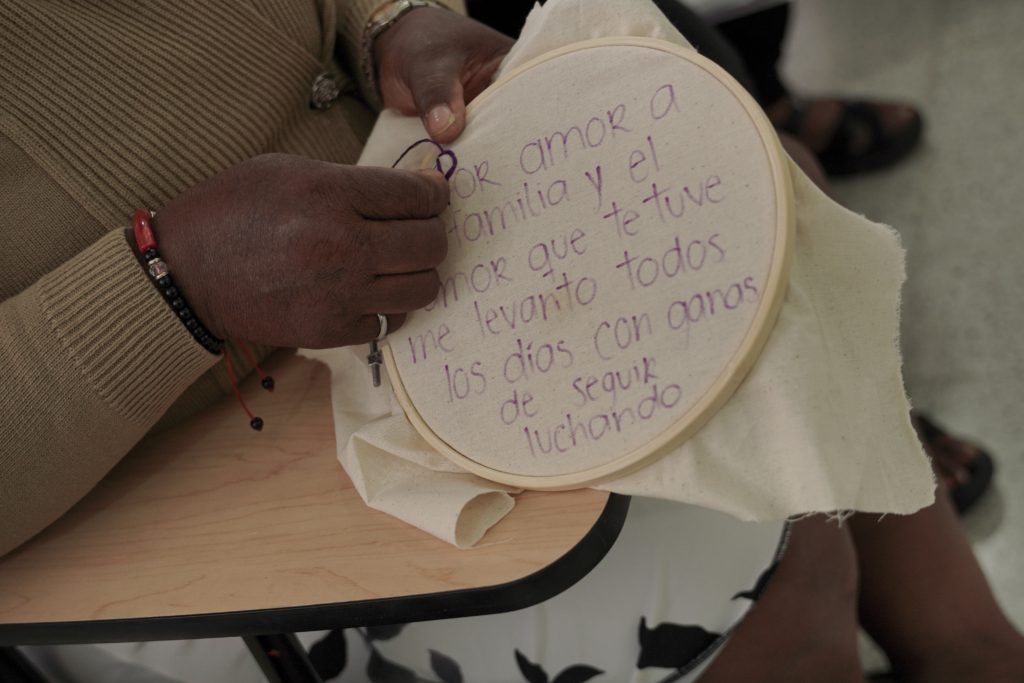 Por amor a
familia y el
amor que te tuve
me levanto todos
los días con ganas
de seguir
luchando